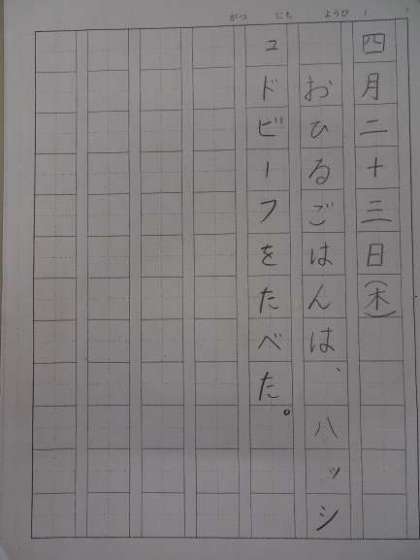 がつ にち ようび
四月二十三日(木)
おひるごはんは、ハッシ
ュドビーフをたべた。